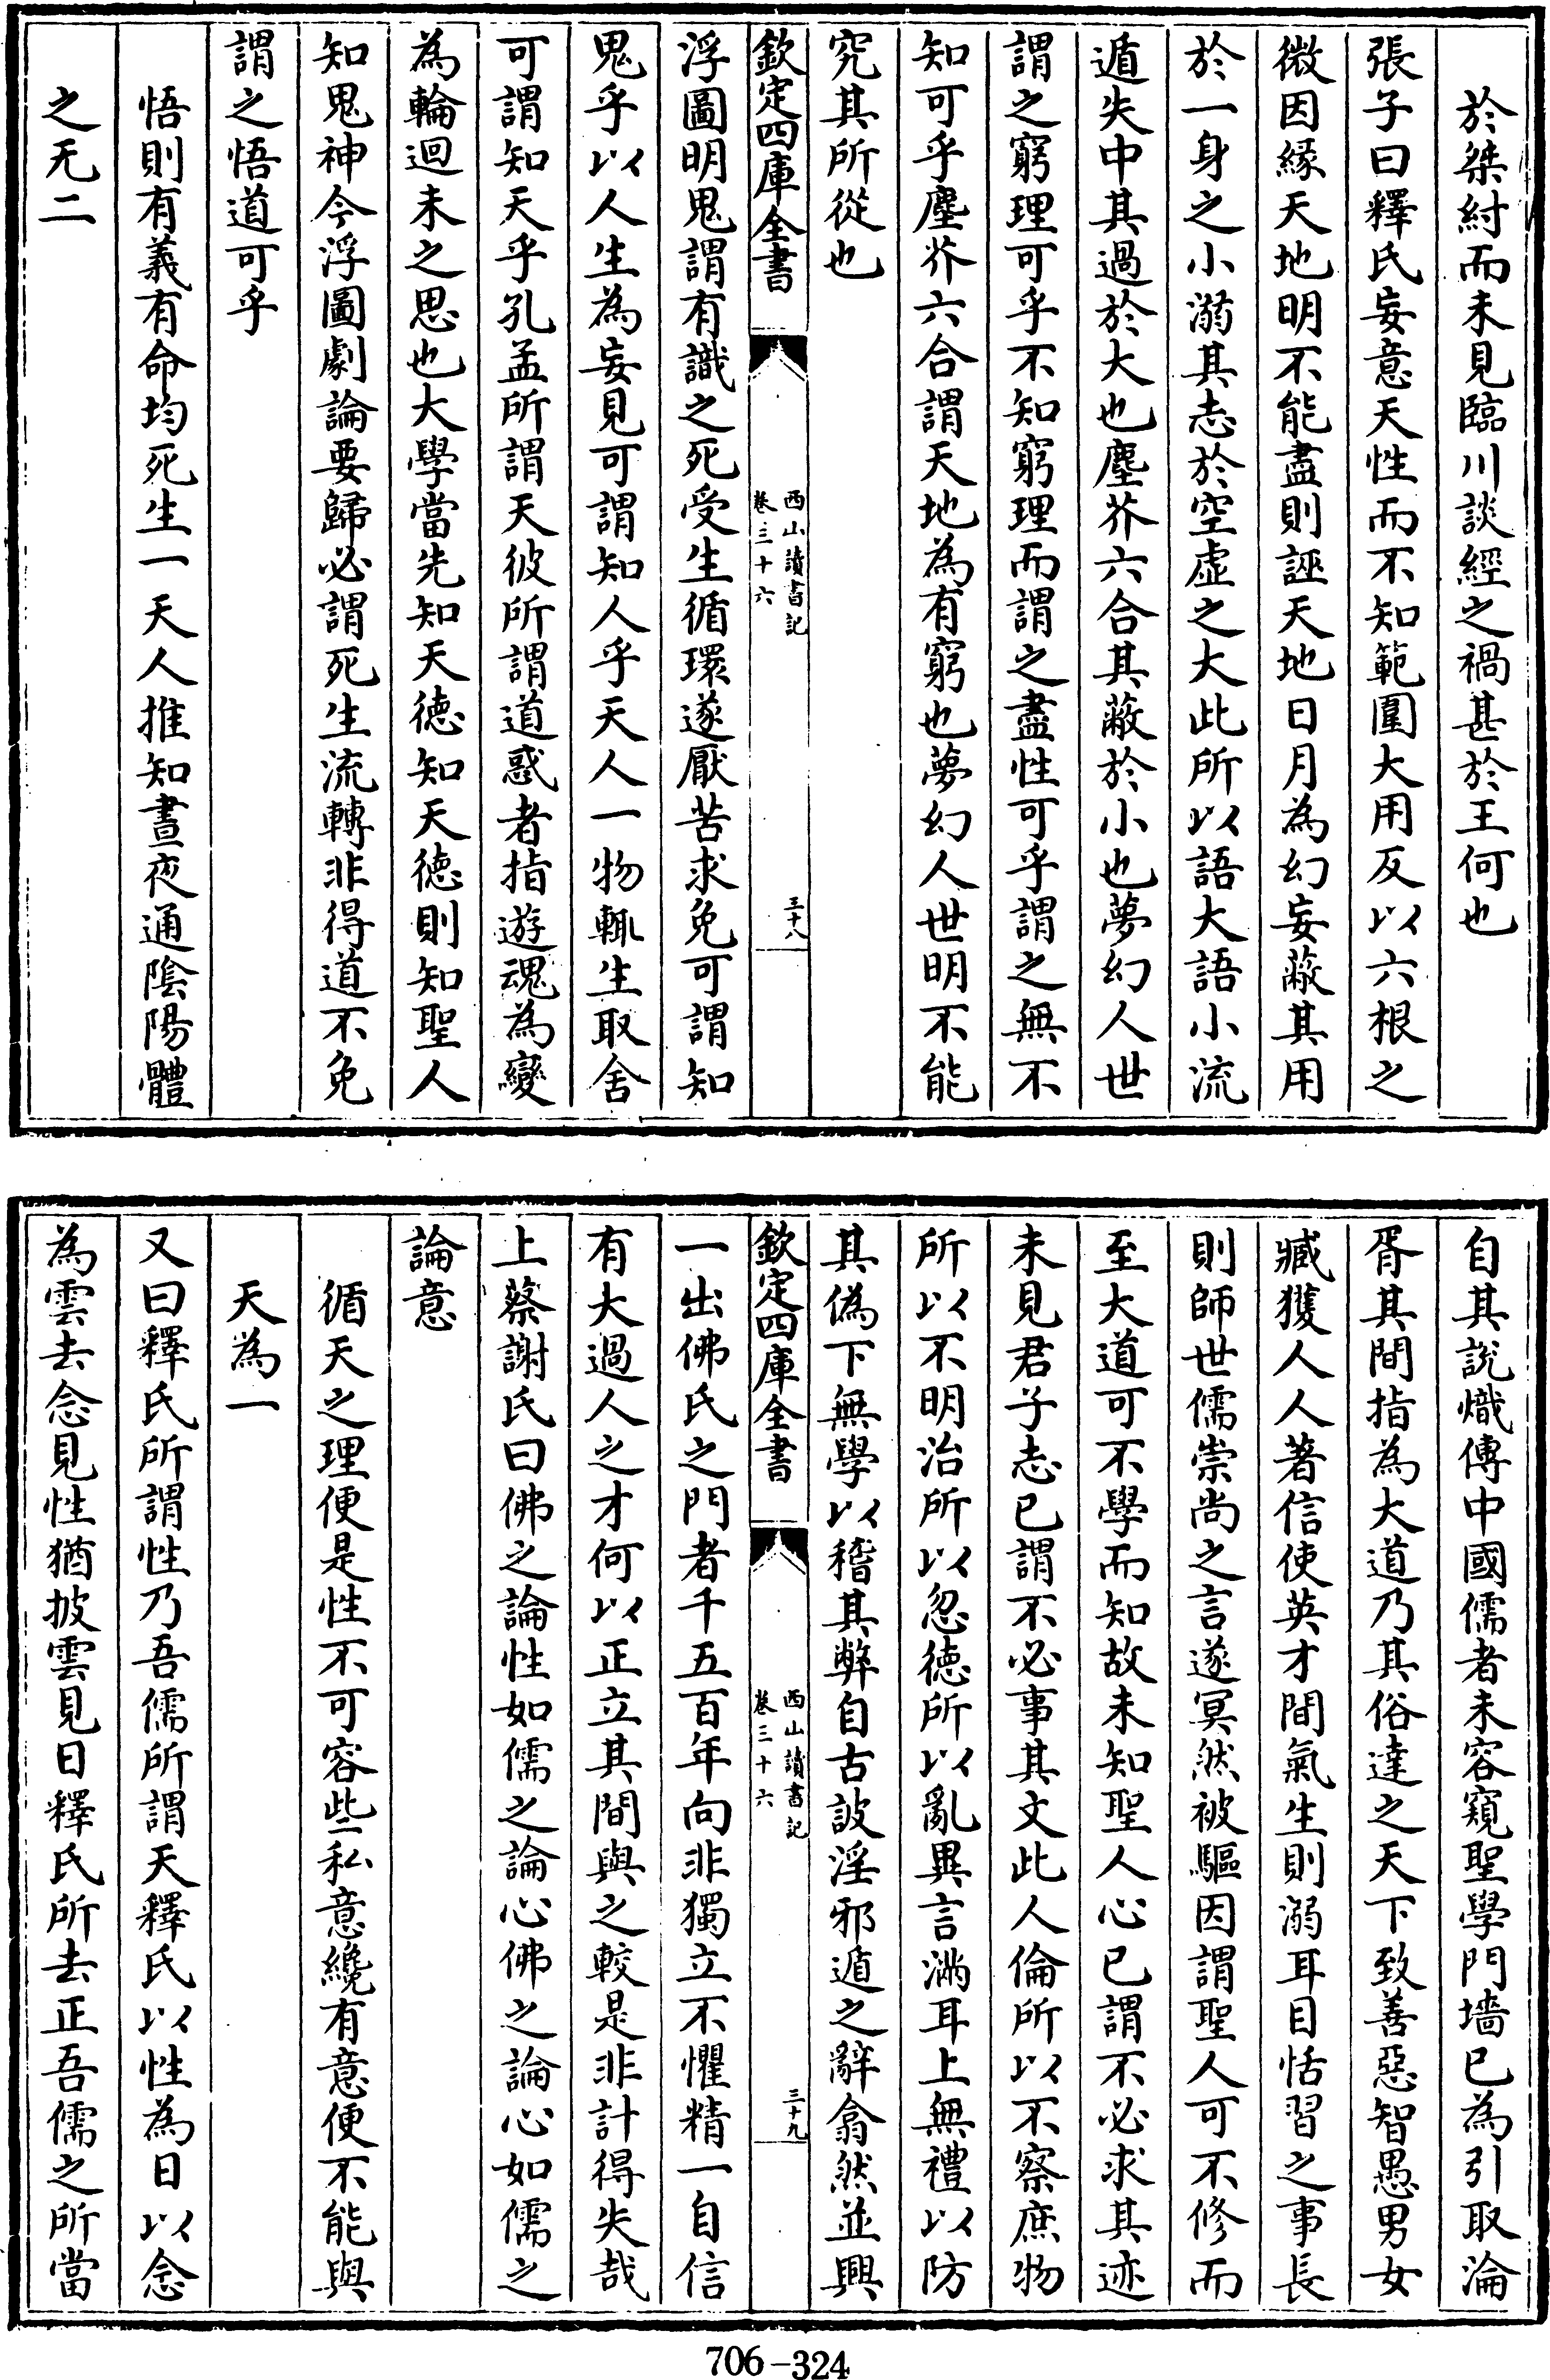 於桀紂而未見臨川談經之禍甚於王何也
張子曰釋氏妄意天性而不知範圍大用反以六根之
微因緣天地明不能盡則誣天地日月為幻妄蔽其用
於一身之小溺其志於空虛之大此所以語大語小流
遁失中其過於大也塵芥六合其蔽於小也夢幻人世
謂之窮理可乎不知窮理而謂之盡性可乎謂之無不
知可乎塵芥六合謂天地為有窮也夢幻人世明不能
究其所從也
欽定四庫全書
西山讀書記
卷三十六
三十八
浮圖明鬼謂有識之死受生循環遂厭苦求免可謂知
鬼乎以人生為妄見可謂知人乎天人一物輒生取舍
可謂知天乎孔孟所謂天彼所謂道惑者指遊魂為變
為輪迴未之思也大學當先知天德知天德則知聖人
知鬼神今浮圖劇論要歸必謂死生流轉非得道不免
謂之悟道可乎
悟則有義有命均死生一天人推知晝夜通陰陽體
之无二
自其說熾傳中國儒者未容窺聖學門墻已為引取淪
胥其間指為大道乃其俗達之天下致善惡智愚男女
臧獲人人著信使英才間氣生則溺耳目恬習之事長
則師世儒崇尚之言遂冥然被驅因謂聖人可不修而
至大道可不學而知故未知聖人心已謂不必求其迹
未見君子志已謂不必事其文此人倫所以不察庶物
所以不明治所以忽德所以亂異言滿耳上無禮以防
其偽下無學以稽其弊自古詖淫邪遁之辭翕然並興
欽定四庫全書
西山讀書記
卷三十六
三十九
一出佛氏之門者千五百年向非獨立不懼精一自信
有大過人之才何以正立其間與之較是非計得失哉
上蔡謝氏曰佛之論性如儒之論心佛之論心如儒之
論意
循天之理便是性不可容些私意纔有意便不能與
天為一
又曰釋氏所謂性乃吾儒所謂天釋氏以性為日以念
為雲去念見性猶披雲見日釋氏所去正吾儒之所當
706-324